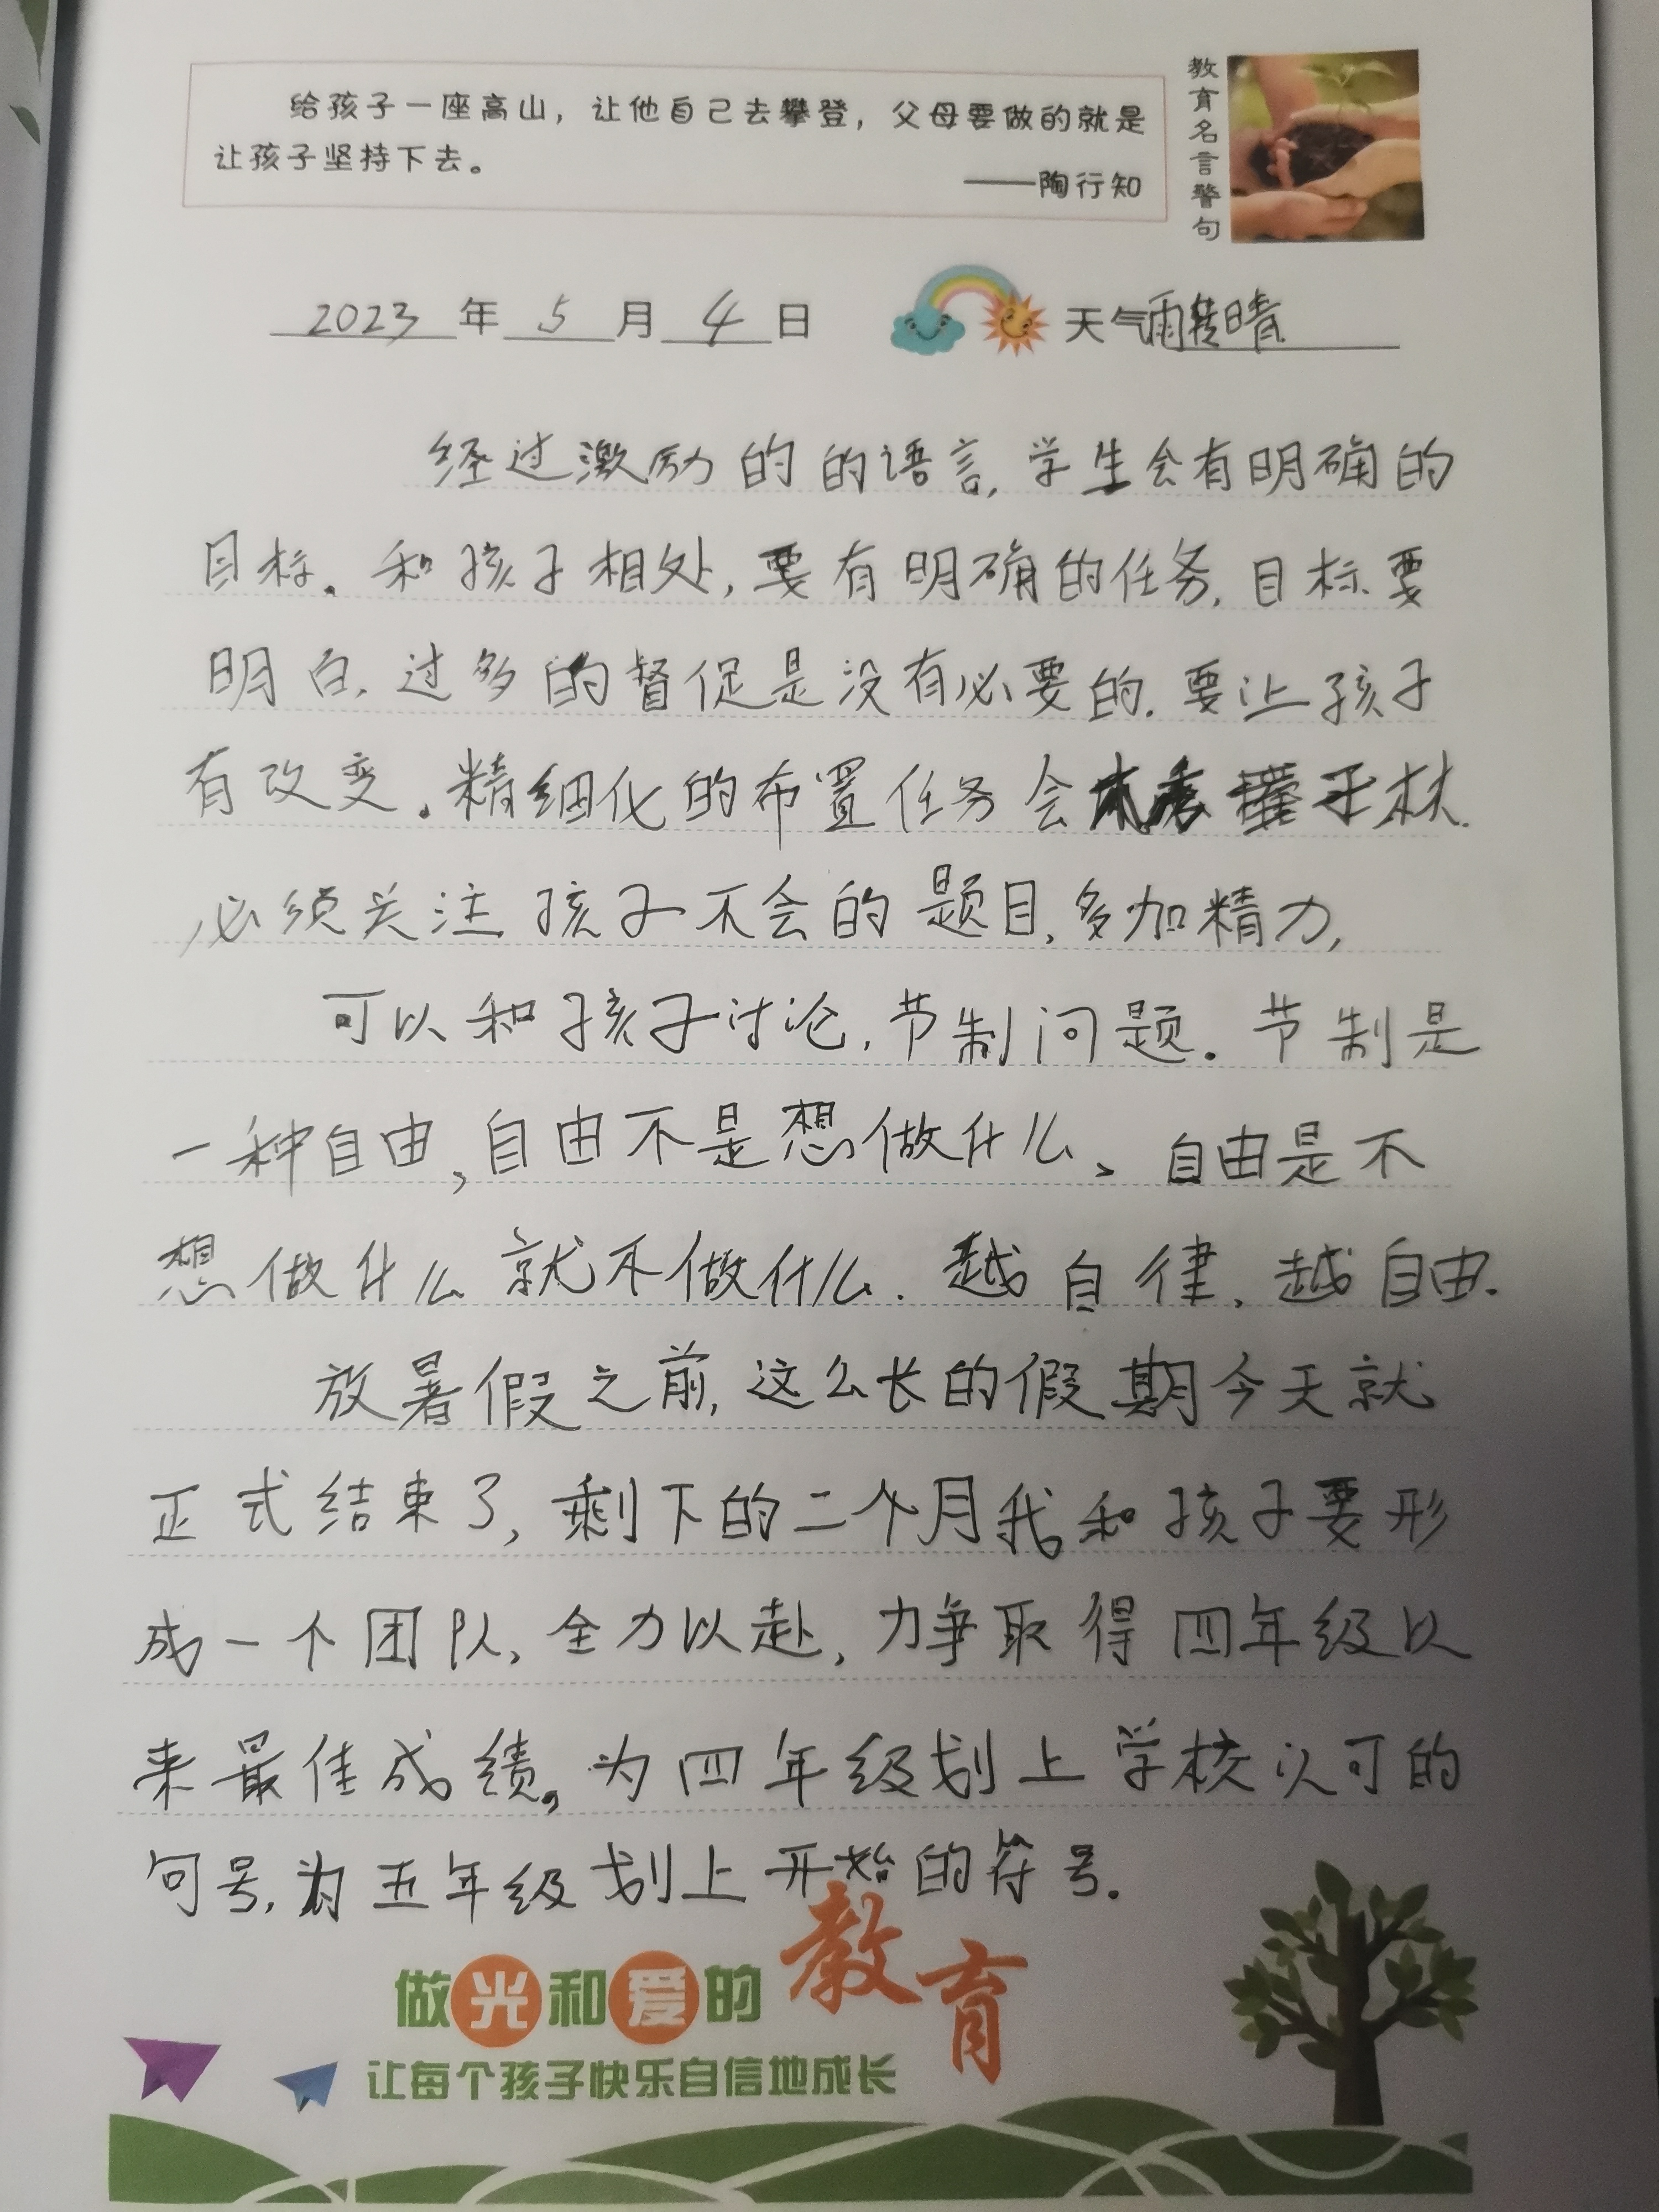 给孩子一座高山，让他自己去攀登，父母要做的就是
让孩子坚持下去。
——陶行知
教育名言警句
2023年5月4日 天气雨转晴
经过激励的的语言,学生会有明确的
目标。和孩子相处,要有明确的任务,目标要
明白,过多的督促是没有必要的.要让孩子
有改变。精细化的布置任务会
必须关注孩子不会的题目,多加精力,
可以和孩子讨论,节制问题。节制是
一种自由,自由不是想做什么、自由是不
想做什么就不做什么.越自律、越自由.
放暑假之前,这么长的假期今天就
正式结束了,剩下的二个月我和孩子要形
成一个团队、全力以赴,力争取得四年级以
来最佳成绩,为四年级划上学校认可的
句号,为五年级划上开始的符号.
做光和爱的教育
让每个孩子快乐自信地成长